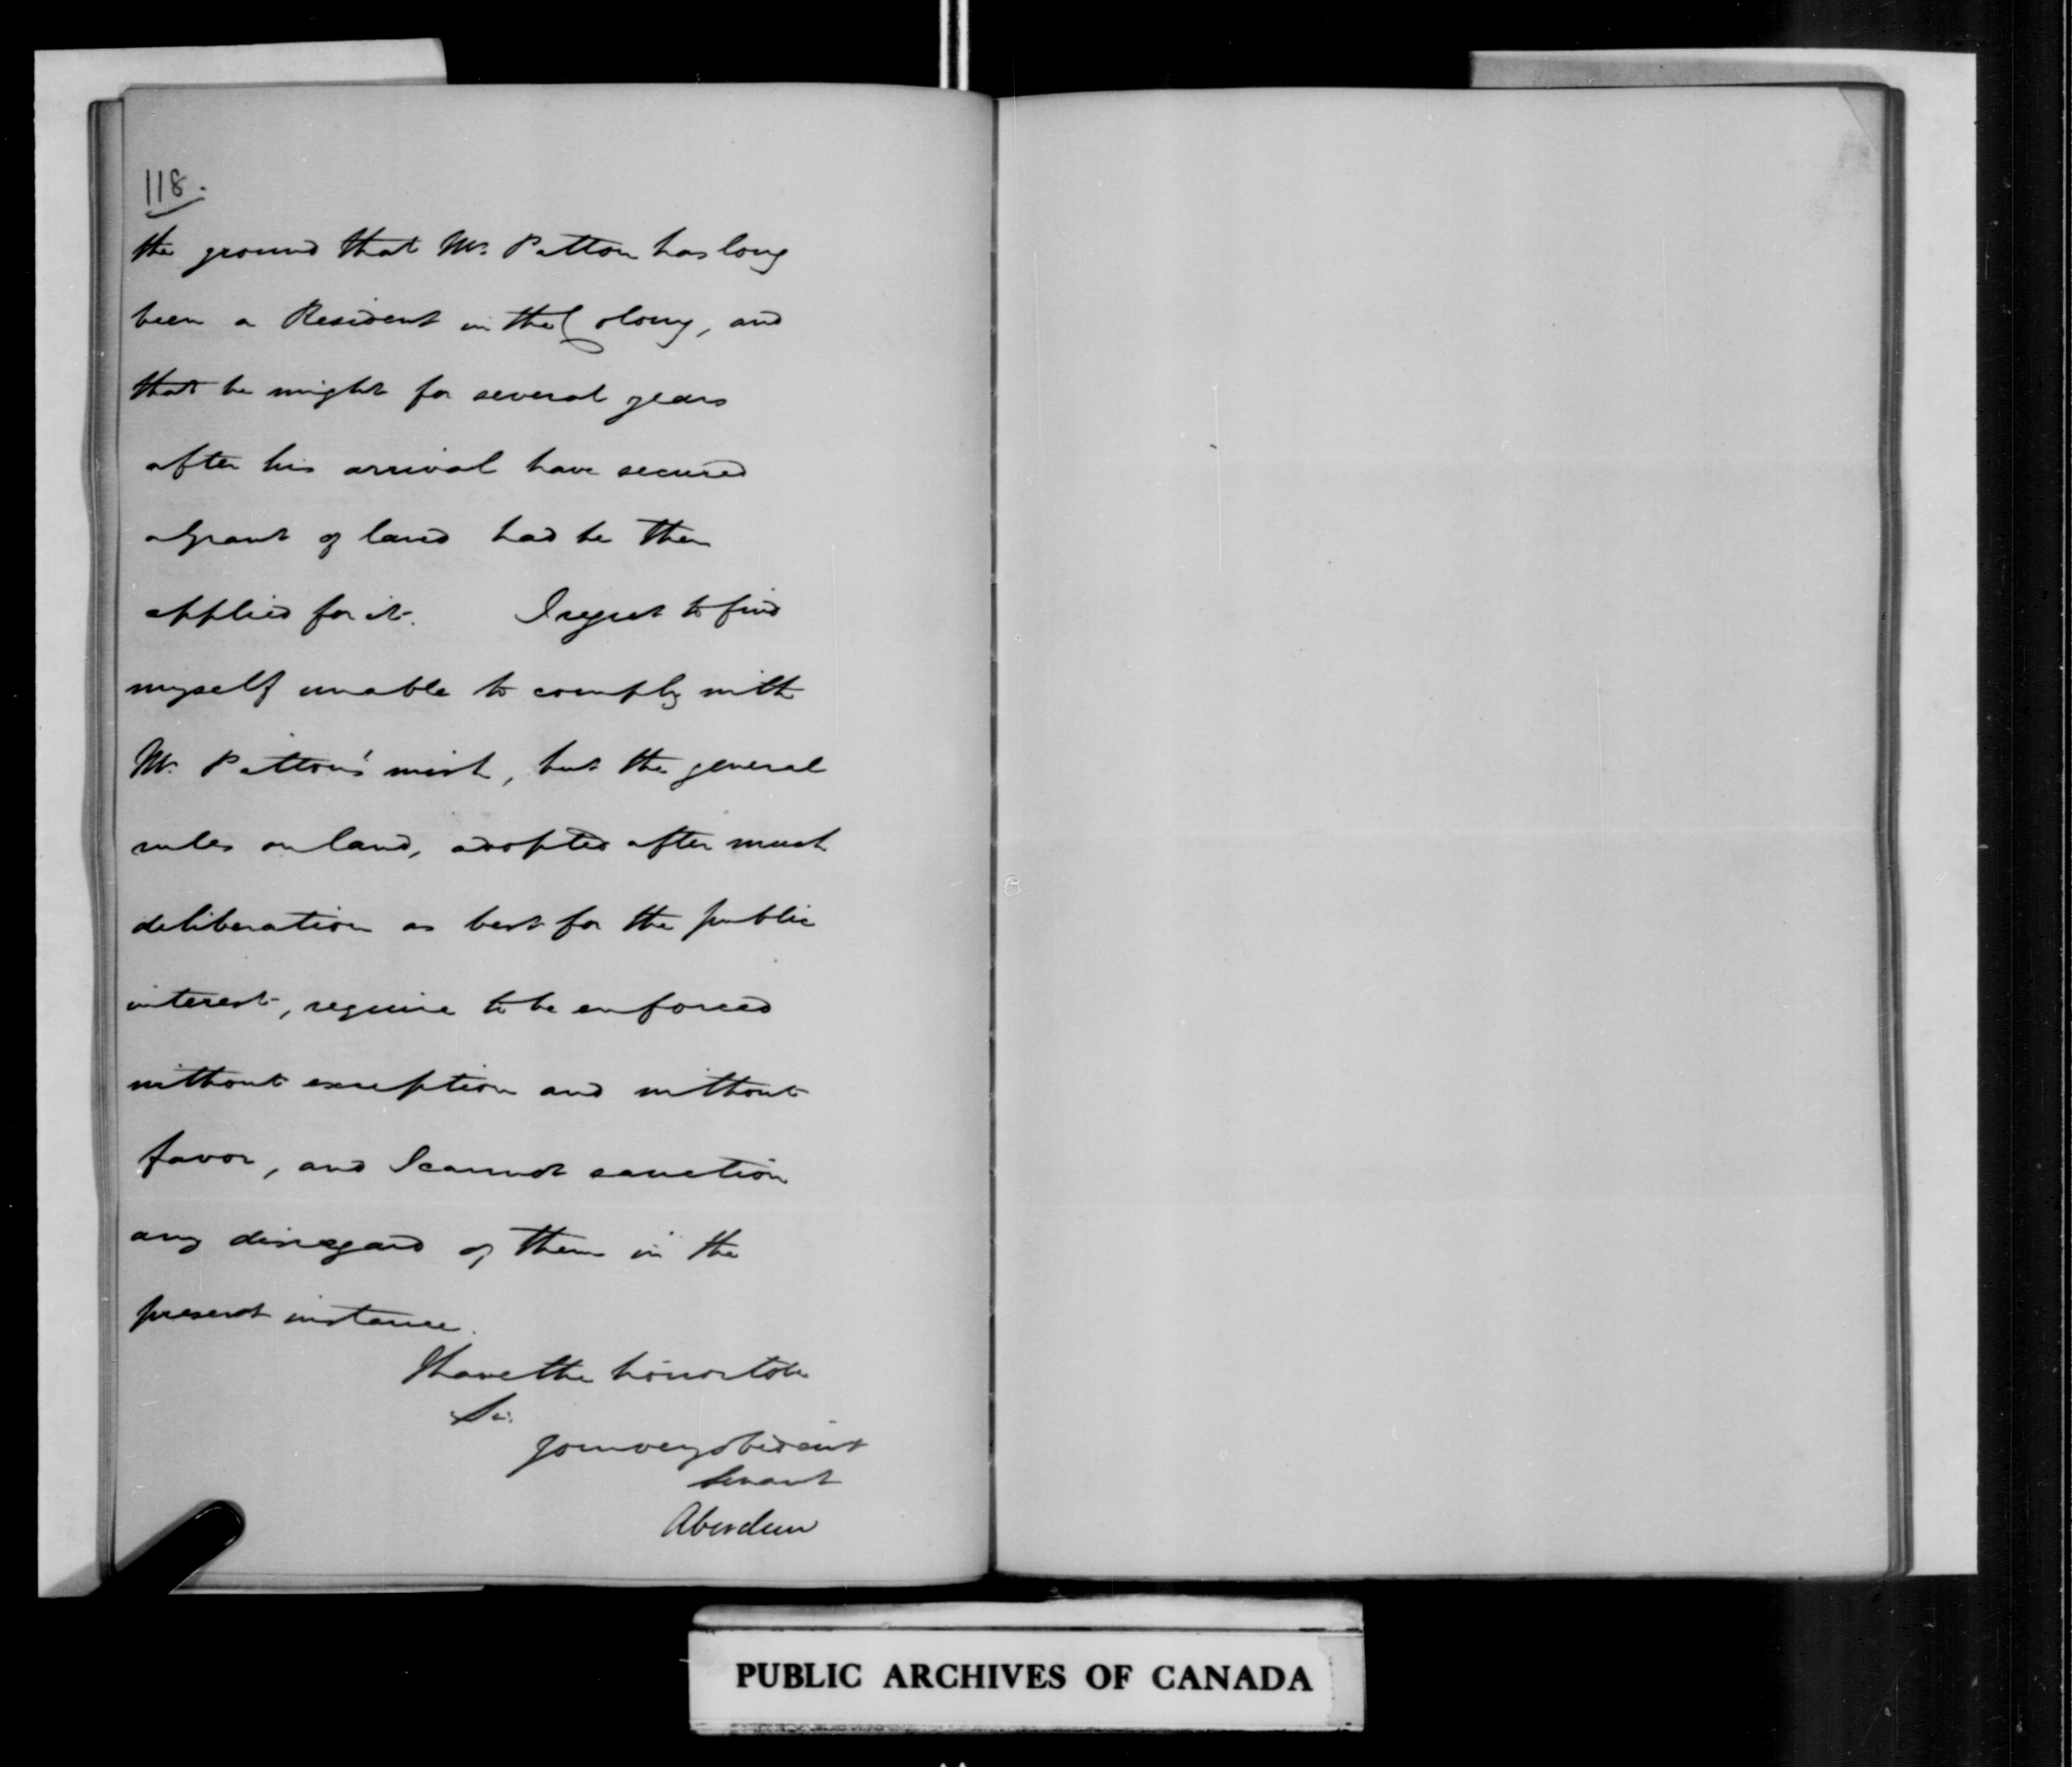 118.
the ground that Mr. Patton has long
been a Resident in the Colony, and
that he might for several years
after his arrival have secured
a Grant of land had he then
applied for it. I regret to find
myself unable to comply with
Mr. Patton's wish, but the general
rules on land, adopted after much
deliberation as best for the public
interest, require to be enforced
without exception and without
favor, and I cannot sanction
any disregard of them in the
present instance.
I have the honor to be
Sir.
Your very obedient
Servant
Aberdeen
PUBLIC ARCHIVES OF CANADA